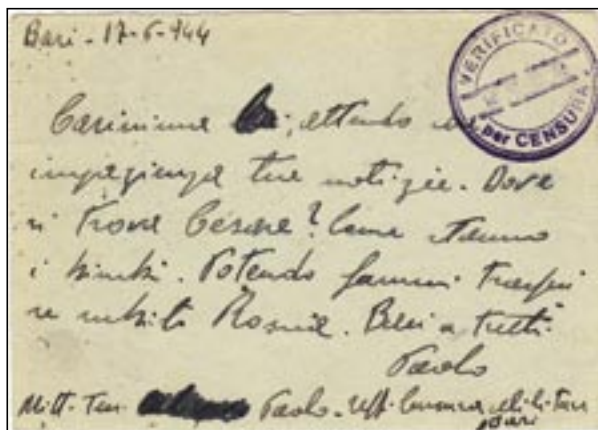 Bari - 17-6-944
VERIFICATO
per CENSURA
Carissima attendo
impazienza tue notizie. Dove
si trova Cesare? Come stanno
i bimbi. Potendo fammi
subito Rosina. Baci a tutti
Paolo
Mitt. Ten. Paolo - Uff. Censura Militare
Bari